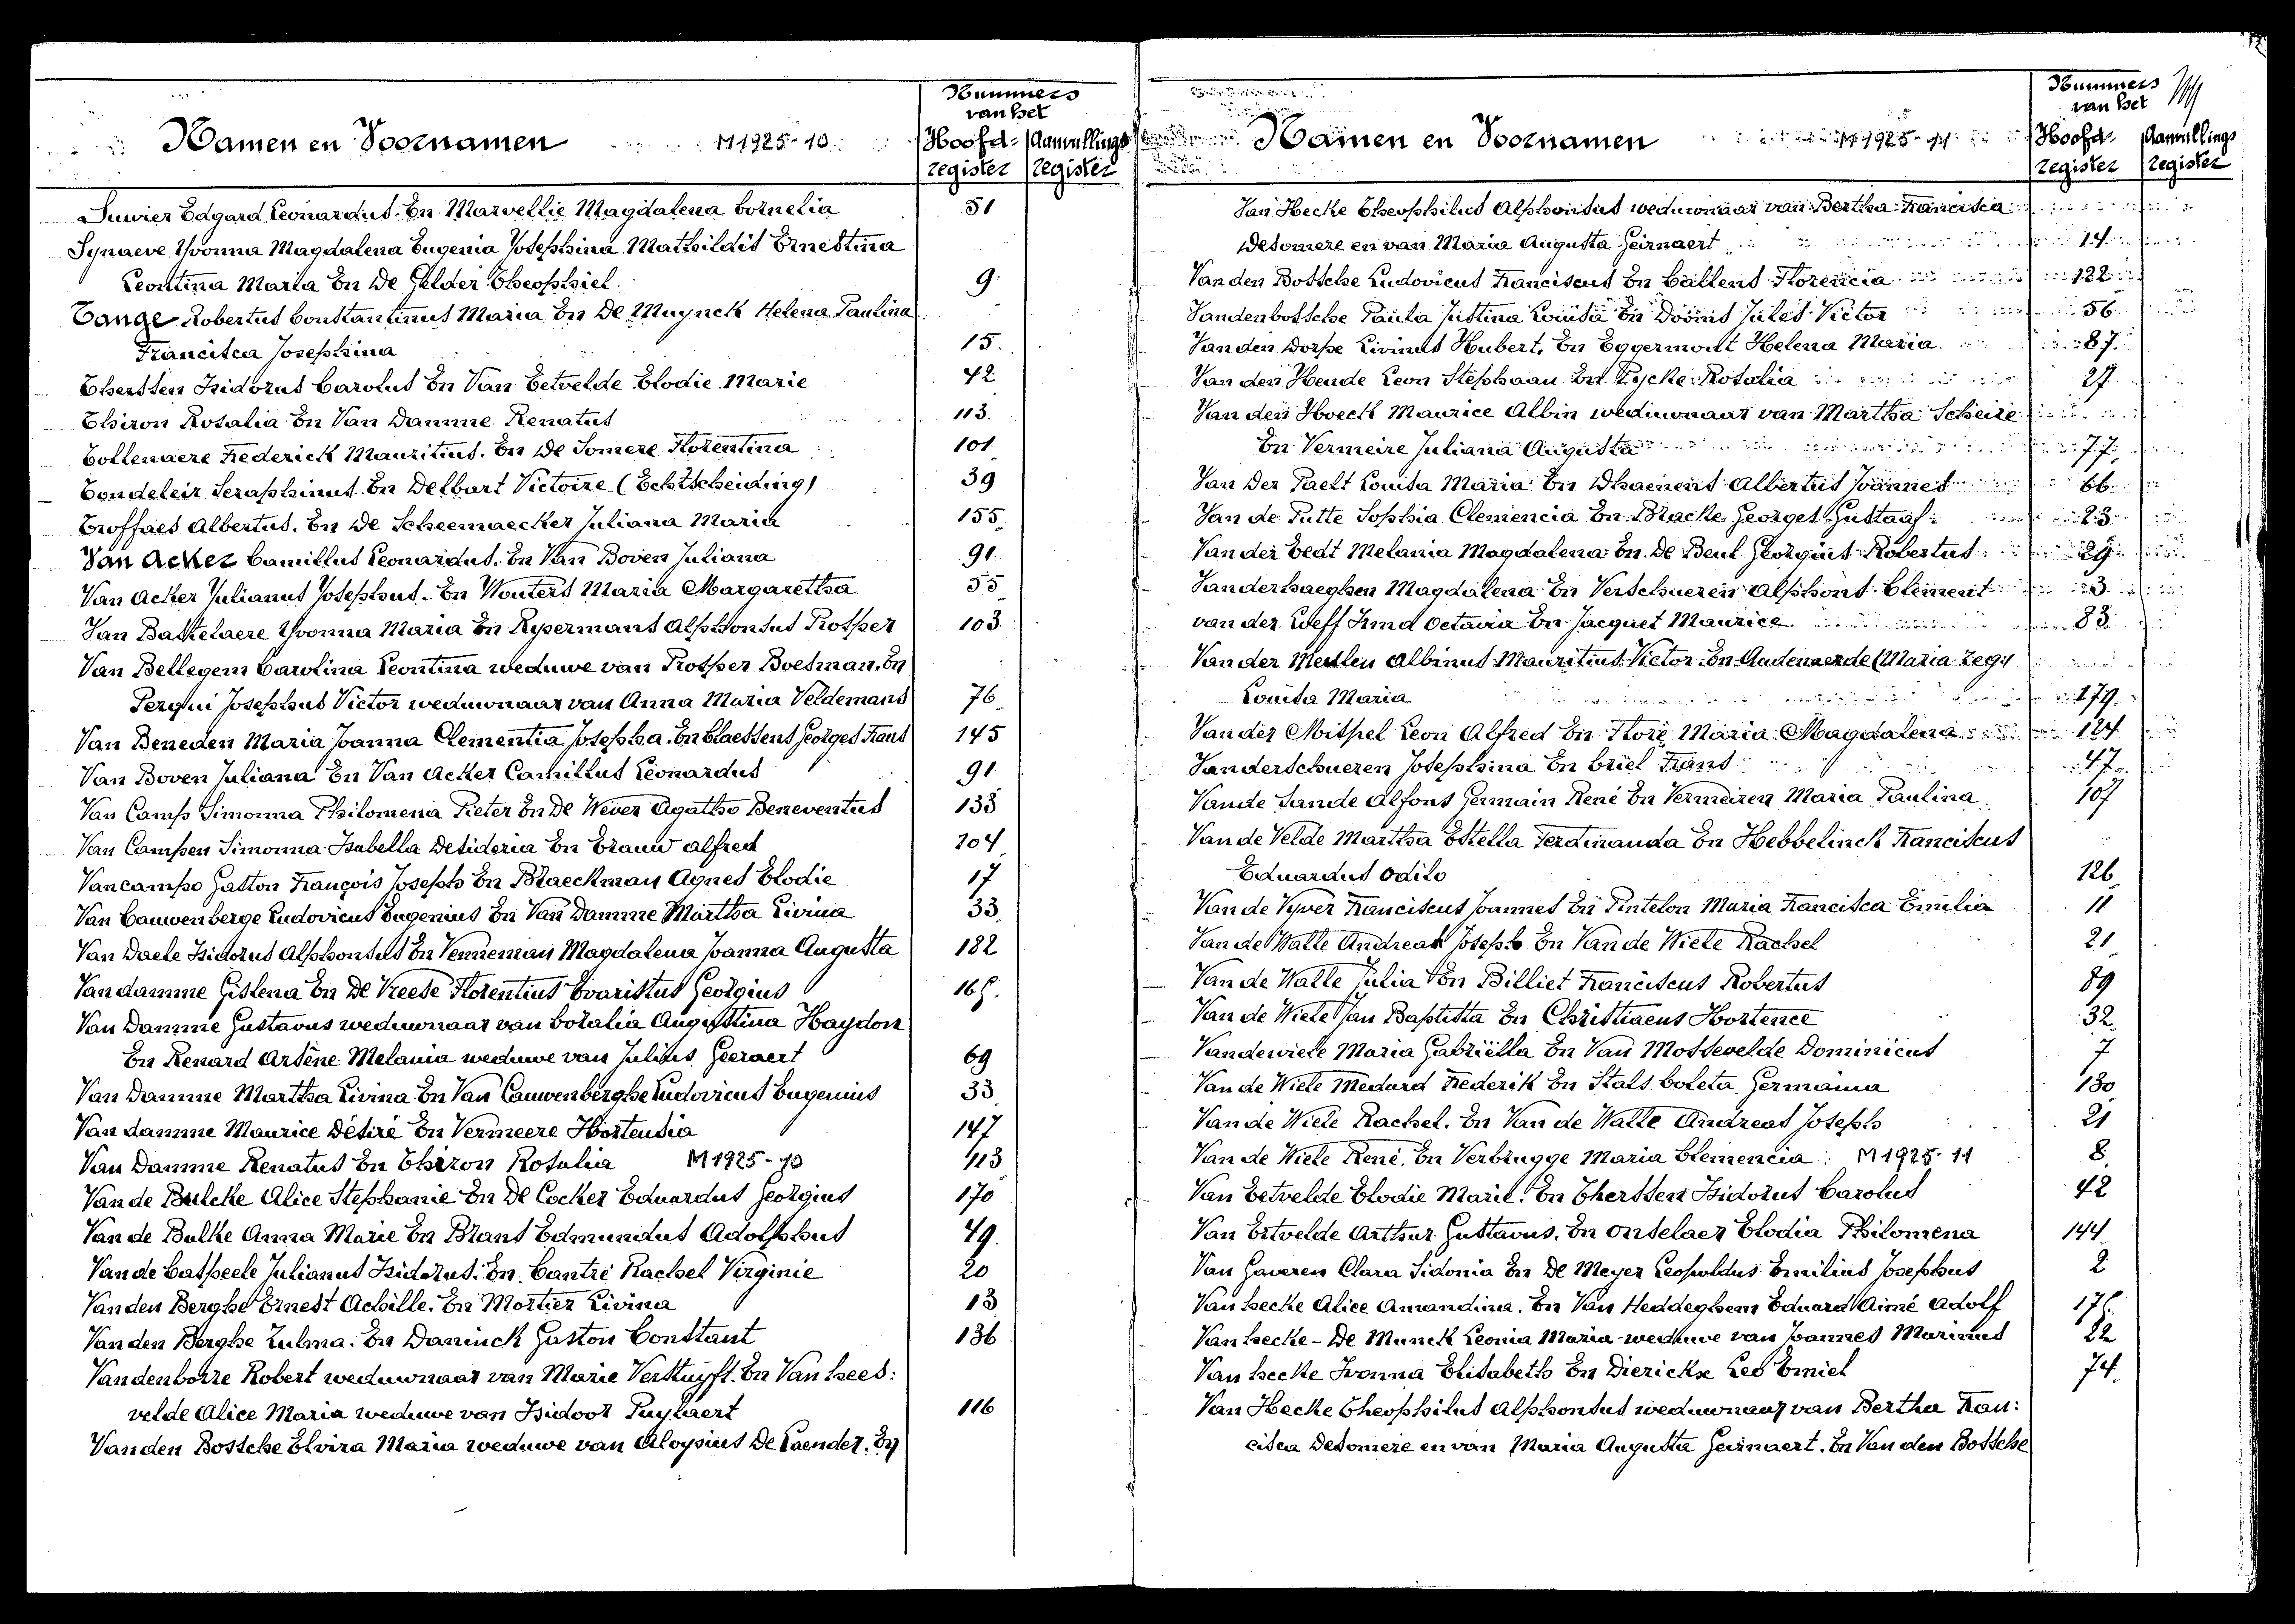 Nummers
van het
Namen en Voornamen M1925-10 Hoofd- Aanvullings
register register
Suvier Edgard Leonardus. En Marvellie Magdalena Cornelia 51
Synaeve Yvonna Magdalena Eugenia Josephina Mathildis Ernestina
Leontina Maria En De Gelder Theophiel 9
Tange Robertus Constantinus Maria En De Muynck Helena Paulina
Francisca Josephina 15.
Therssen Isidorus Carolus En Van Eetvelde Elodie Marie 42
Thiron Rosalia En Van Damme Renatus 113.
Tollenaere Frederick Mauritius. En De Somere Florentina 101
Tondeleir Seraphinus En Delbart Victoire (Echtscheiding) 39
Troffaes Albertus. En De Scheemaecker Juliana Maria 155
Van Acker Camillus Leonardus. En Van Boven Juliana 91
Van Acker Julianus Josephus. En Wouters Maria Margaretha 55
Van Basselaere Yvonna Maria En Rypermans Alphonsus Prosper 103
Van Bellegem Carolina Leontina weduwe van Prosper Boesman. En
Serqui Josephus Victor weduwnaar van Anna Maria Veldemans 76
Van Beneden Maria Joanna Clementia Josepha. En Claessens Georges Frans 145
Van Boven Juliana En Van Acker Camillus Leonardus 91
Van Camp Simonna Philomenia Pieter En De Wever Agatho Beneventus 133
Van Campen Simonna Isabella Desideria En Brauw alfred 104
Vancampo Gaston François Joseph En Blaeckman Agnes Elodie 17
Van Cauwenberge Ludovicus Eugenius En Van Damme Martha Livina 33
Van Daele Isidorus Alphonsus En Venneman Magdalena Joanna Augusta 182
Van damme Gislena En De Vreese Florentius Evaristus Georgius 165.
Van Damme Gustavus weduwnaar van Coralia Augustina Haydon
En Renard Arsène Melania weduwe van Julius Geeraert 69
Van Damme Martha Livina En Van Cauwenberghe Ludovicus Eugenius 33
Van damme Maurice Désiré En Vermeere Hortensia 147
Van Damme Renatus En Thiron Rosalia M1925-10 113
Van de Bulcke Alice Stephanie En De Cocker Eduardus Georgius 170
Van de Bulke Anna Marie En Brans Edmundus Adolphus 49.
Van de Casseele Julianus Isidorus. En Cantré Rachel Virginie 20
Van den Berghe Ernest Achille. En Mortier Livina 13
Van den Berghe Zulma. En Daninck Gaston Constant 136
Vandenborre Robert weduwnaar van Marie Verstuyft. En Van hees:
velde Alice Maria weduwe van Isidoor Puylaert 116
Van den Bossche Elvira Maria weduwe van Aloysius De Caender. En
Nummers
van het
Namen en Voornamen M1925-11 Hoofd- Aanvullings
register register
Van Hecke Theophilus Alphonsus weduwnaar van Bertha Francisca
Desomere en van Maria Augusta Geirnaert 14
Van den Bossche Ludovicus Franciscus En Callens Florencia 122
Vandenbossche Paula Justina Louisa En Dooms Jules Victor 56
Van den Dorpe Livinus Hubert. En Eggermont Helena Maria 87
Van den Hende Leon Stephaan En Eycke Rosalia 27
Van den Hoeck Maurice Albin weduwnaar van Martha Scheire
En Vermeire Juliana Augusta 77
Van Der Paelt Louisa Maria En Dhaenens Albertus Joannes 66
Van de Putte Sophia Clemencia En Bracke Georges Gustaaf 23
Van der Eedt Melania Magdalena En De Beul Georgius Robertus 29
Vanderhaeghen Magdalena En Verschueren Alphons Clement 3
van der Loeff Irma Octavia En Jacquet Maurice 83
Van der Meulen Albinus Mauritius Victor En Audenaerde (Maria zeg)
Louisa Maria 179
Van der Mispel Leon Alfred En Floré Maria Magdalena 124
Vanderschueren Josephina En Criel Frans 47
Van de Sande Alfons Germain René En Vermeiren Maria Paulina 107
Van de Velde Martha Estella Ferdinanda En Hebbelinck Franciscus
Eduardus Odilo 126
Van de Vyver Franciscus Joannes En Pintelon Maria Francisca Emilia 11
Van de Walle Andreas Joseph En Van de Wiele Rachel 21
Van de Walle Julia En Billiet Franciscus Robertus 89
Van de Wiele Jan Baptista En Christiaens Hortence 32
Vandewiele Maria Gabriëlla En Van Mossevelde Dominicus 7
Van de Wiele Medard Frederik En Stals Coleta Germaina 130
Van de Wiele Rachel. En Van de Walle Andreas Joseph 21
Van de Wiele René. En Verbrugge Maria Clemencia M1925-11 8
Van Eetvelde Elodie Marie. En Therssen Isidorus Carolus 42
Van Ertvelde Arthur Gustavus. En Onselaer Elodia Philomena 144
Van Gaveren Clara Sidonia En De Meyer Leopoldus Emilius Josephus 2
Van hecke Alice Amandina. En Van Heddeghem Eduard Aimé Adolf 175.
Van hecke - De Munck Leonia Maria weduwe van Joannes Marinus 22
Van hecke Ivonna Elisabeth En Dierickx Leo Emiel 74.
Van Hecke Theophilus Alphonsus weduwnaar van Bertha Fran:
cisca Desomere en van Maria Augusta Geirnaert. En Van den Bossche